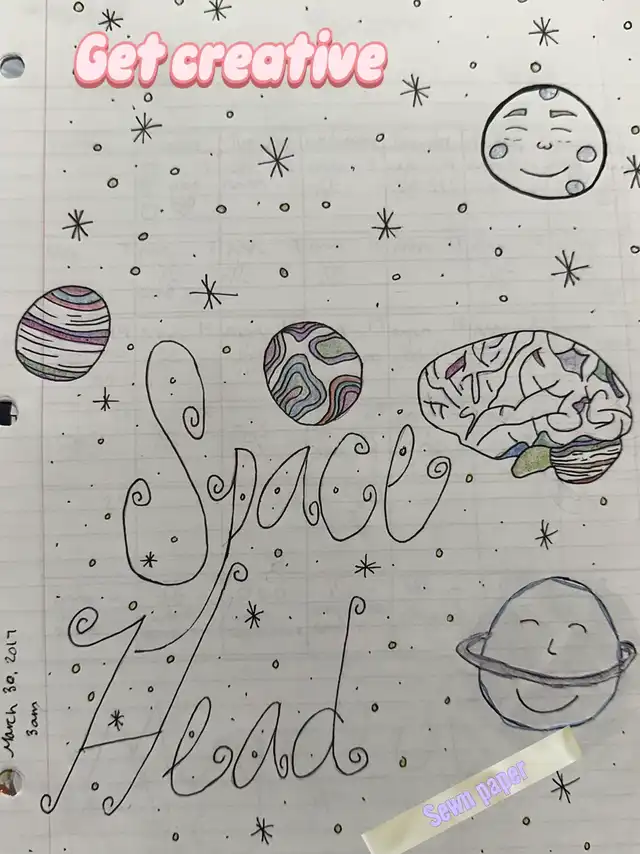 Get creative
Space
Head
March 30, 2017
3am
Sewn paper